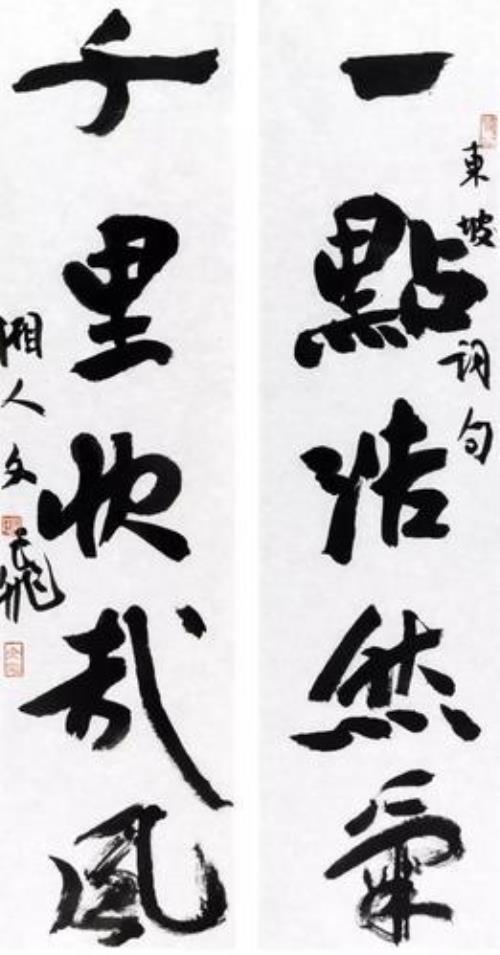 東坡詞句
一點浩然氣
千里快哉風
湘人文飛